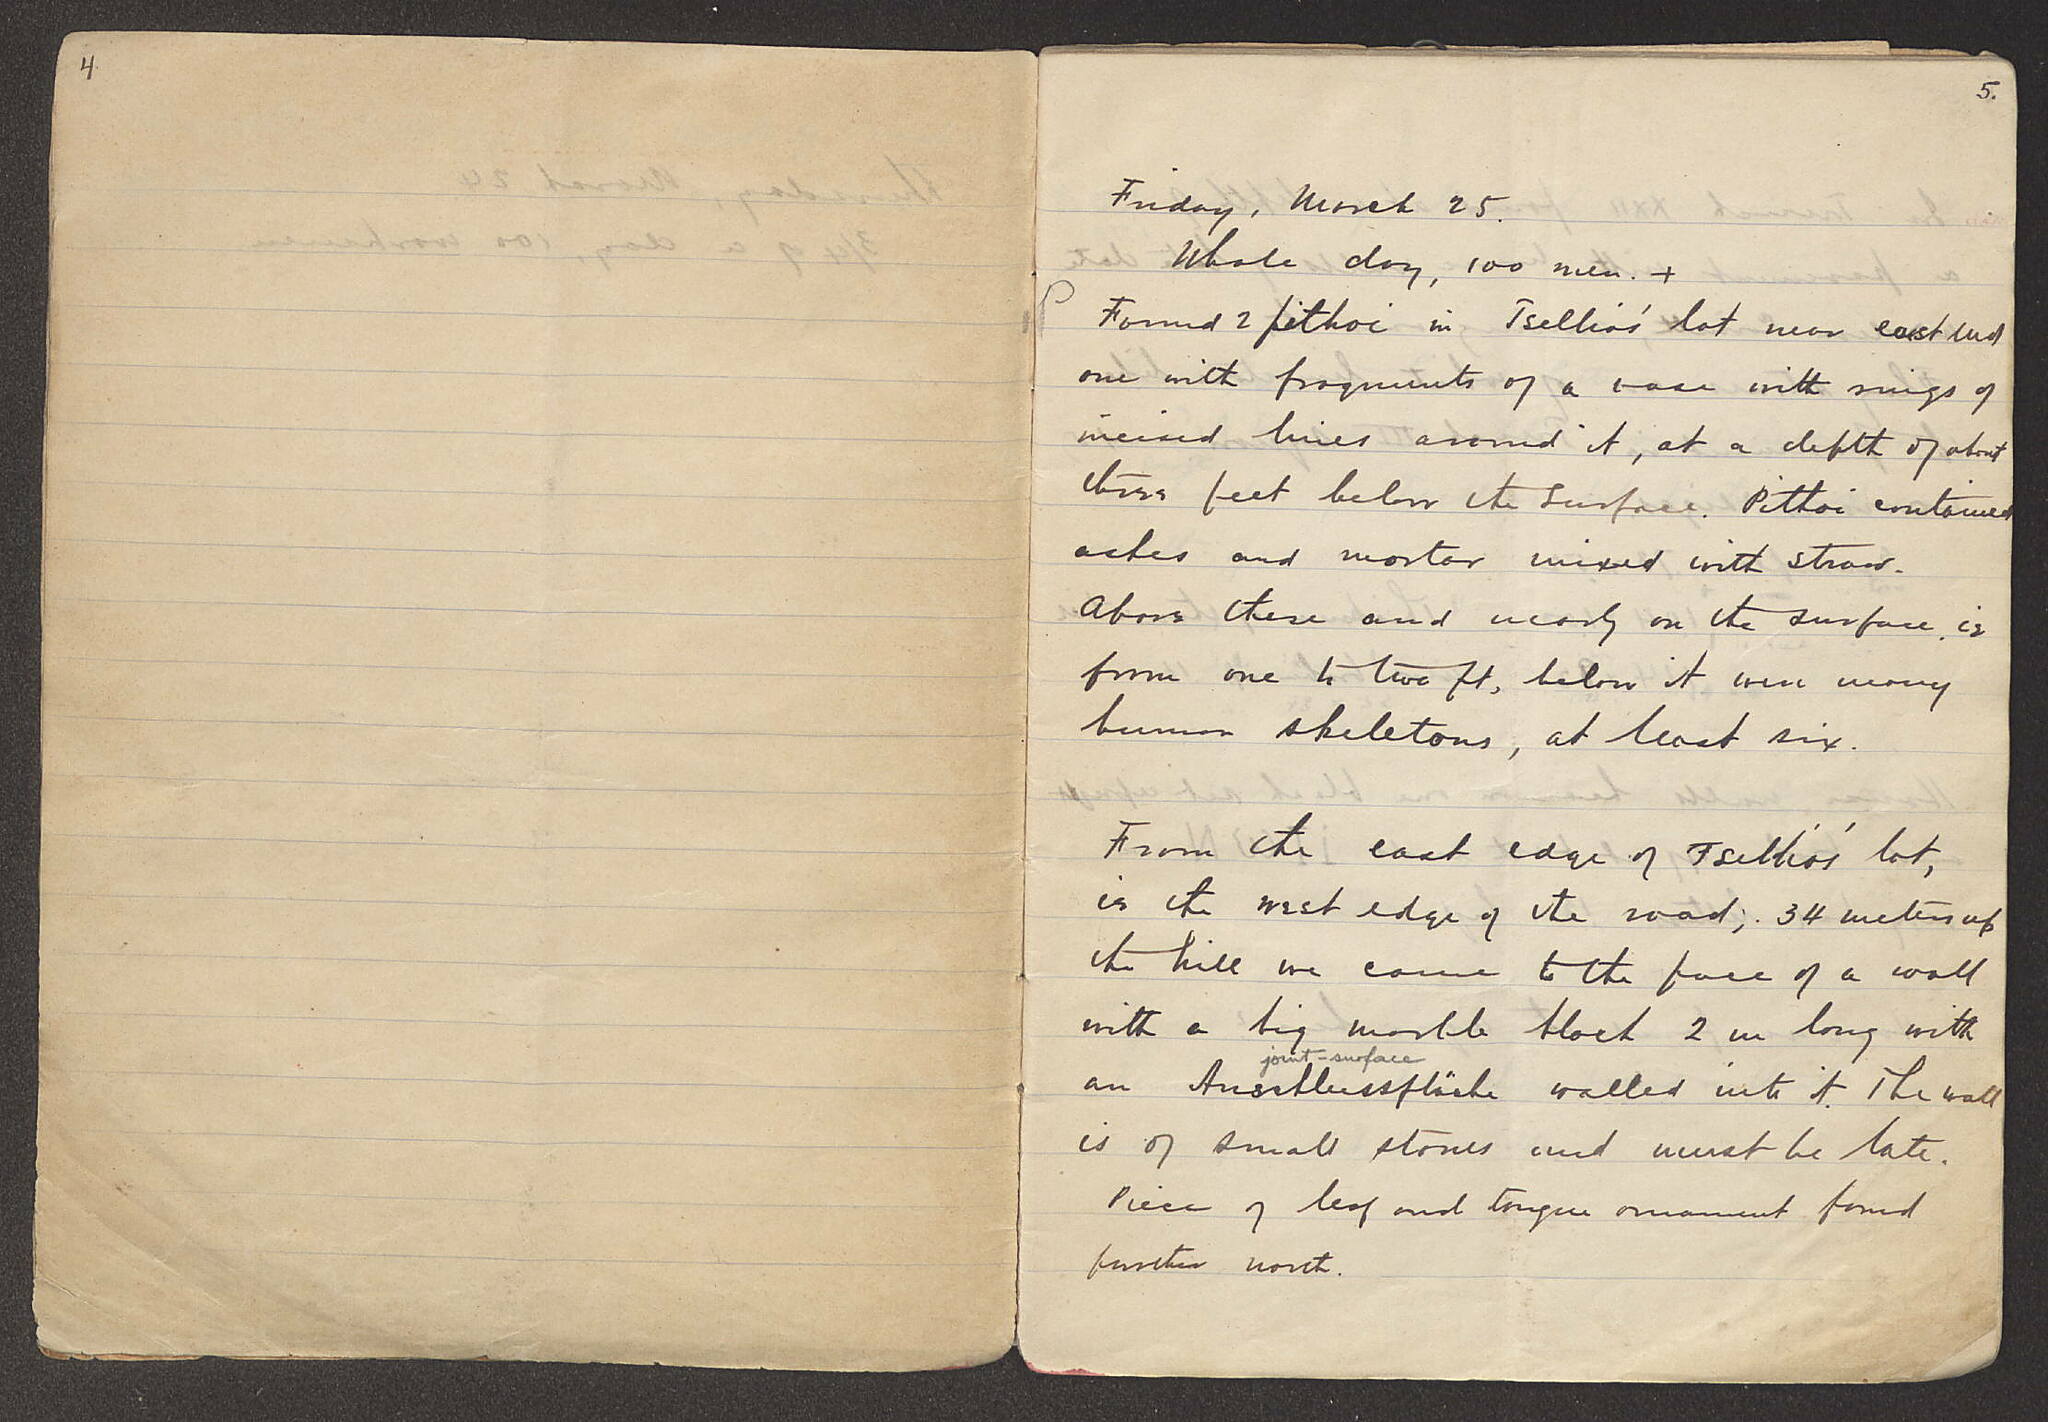 4
5.
Friday, March 25.
Whole day, 100 men. +
Found 2 pithoi in Tselliós' lot near east end
one with fragments of a vase with rings of
incised lines around it, at a depth of about
three feet below the surface. Pithoi contained
ashes and mortar mixed with straw.
Above these and nearly on the surface, ie
from one to two ft, below it were many
human skeletons, at least six.
From the east edge of Tselliós' lot,
ie the west edge of the road; 34 meters up
the hill we came to the face of a wall
with a big marble block 2 m long with
joint-surface
an Anschlussfläche walled into it. The wall
is of small stones and must be late.
Piece of leaf and tongue ornament found
further north.